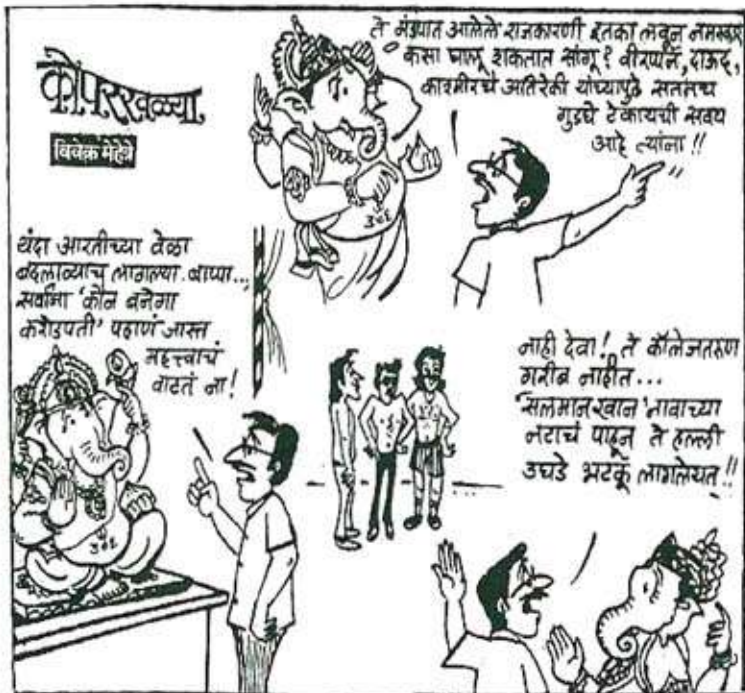 कोपरखळ्या
विवेक मेहेत्रे
ते मंडपात आलेले राजकारणी इतका लवून नमस्कार
कसा घालू शकतात सांगू? वीरप्पन, दाऊद,
काश्मिरचे अतिरेकी यांच्यापुढे सततच
गुडघे टेकायची सवय
आहे त्यांना!!
यंदा आरतीच्या वेळा
बदलाव्याच लागल्या बाप्पा...
सर्वांना 'कौन बनेगा
करोडपती' पहाणं जास्त
महत्त्वाचं
वाटतं ना!
नाही देवा! ते कॉलेजतरुण
गरीब नाहीत...
'सलमान खान' नावाच्या
नटाचं पाहून ते हल्ली
उघडे भटकू लागलेयत!!